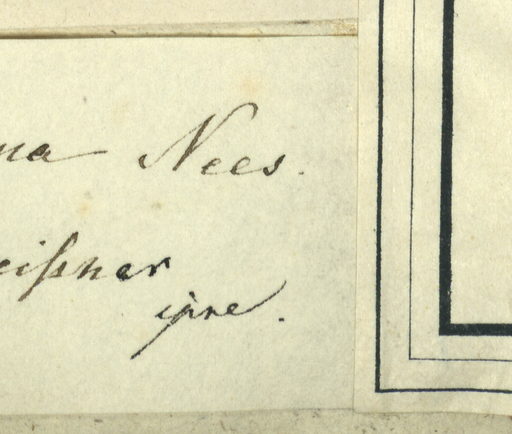 na Nees.
eißner
ipse.